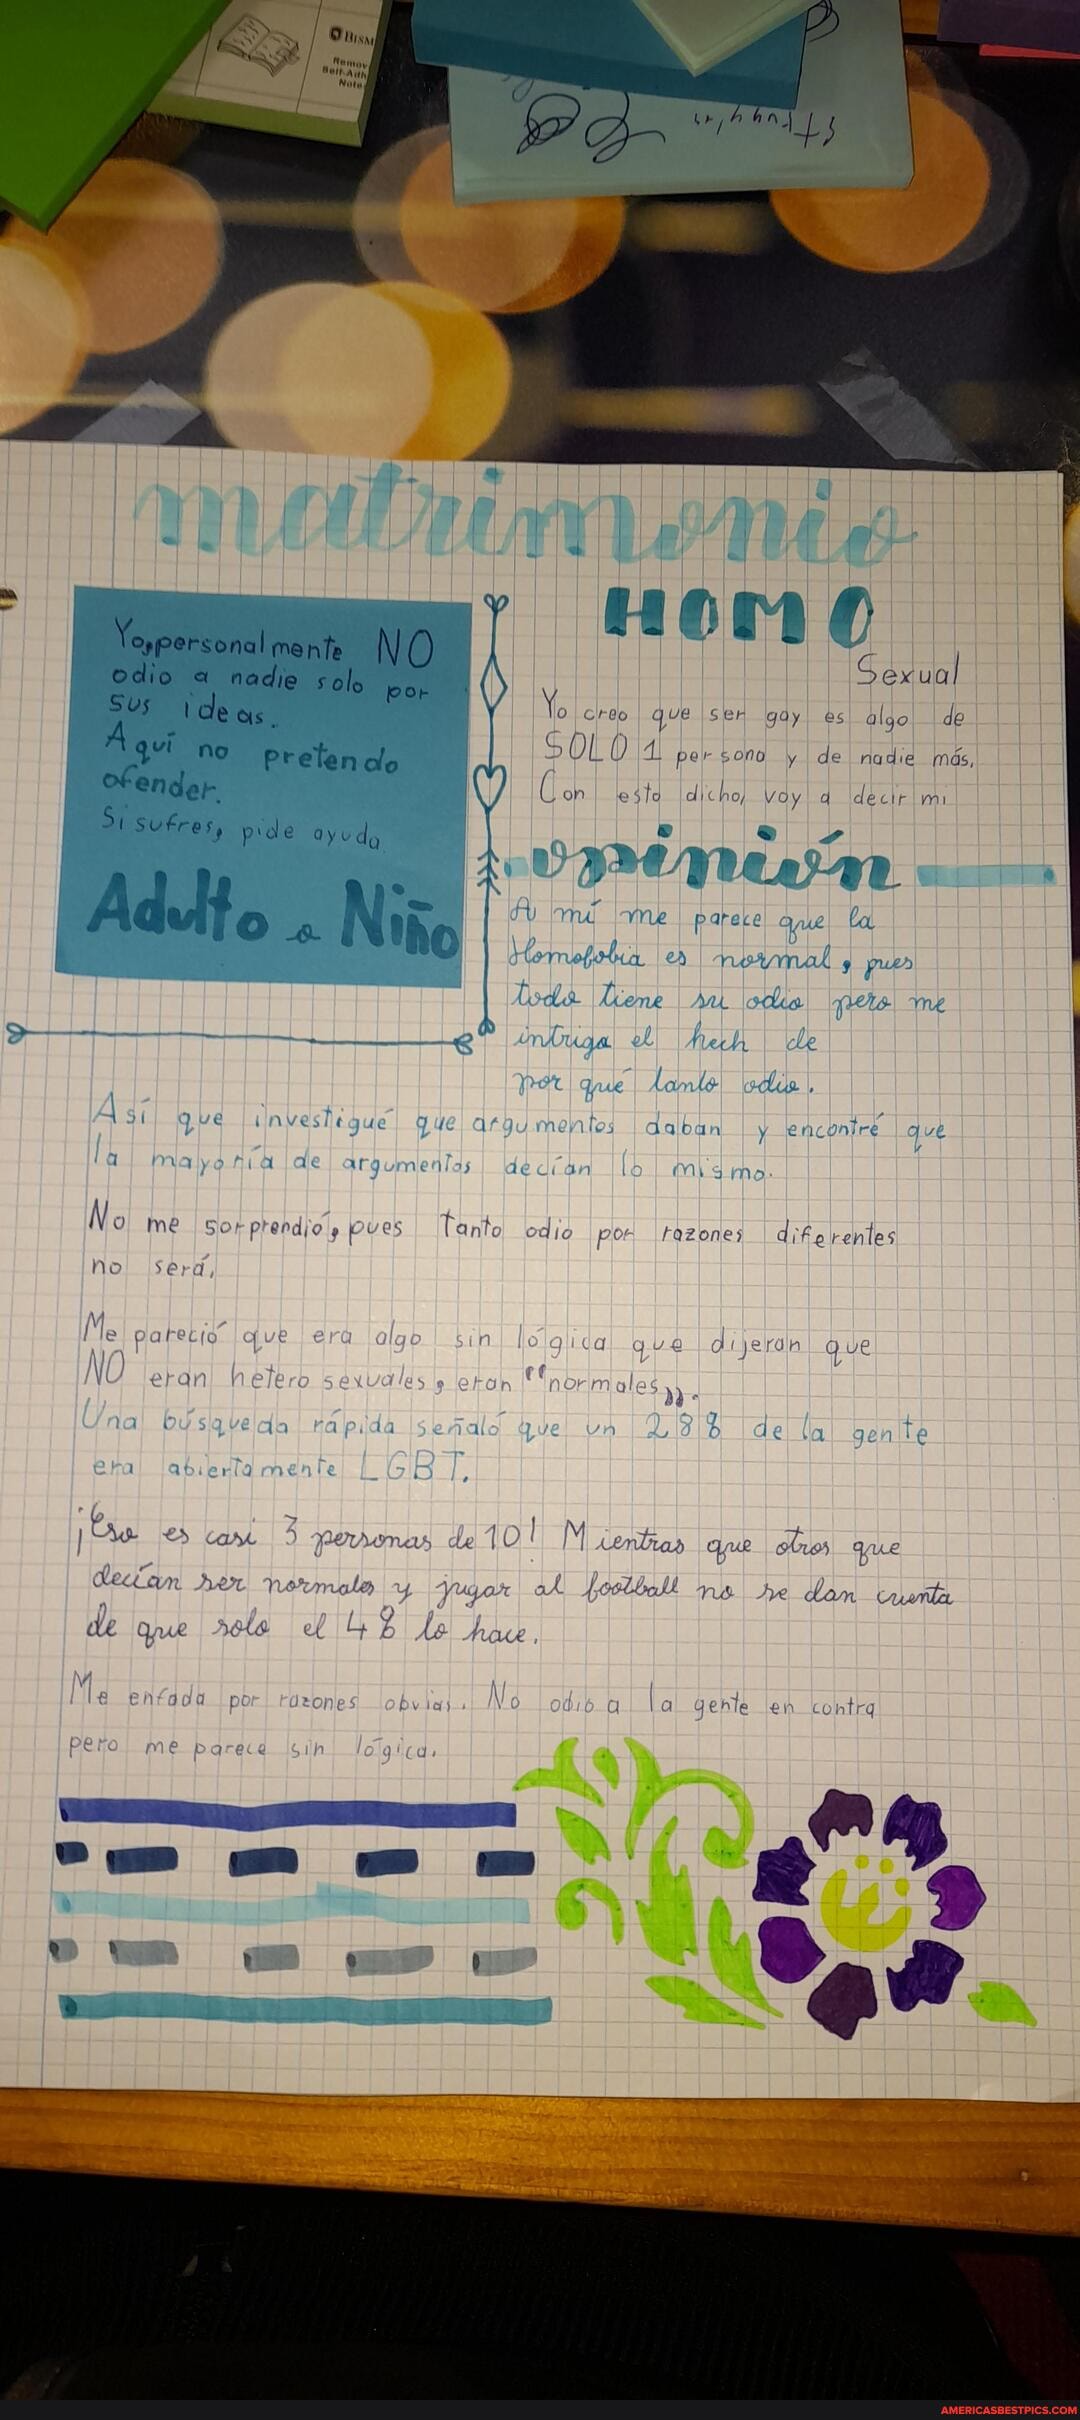 BISM
Remov
Self-Adh
Note
matrimonio
HOMO
Sexual
Yo, personalmente NO
odio a nadie solo por
sus ideas.
Aquí no pretendo
ofender.
Si sufres, pide ayuda.
Adulto o Niño
Yo creo que ser gay es algo de
SOLO 1 persona y de nadie más.
Con esto dicho, voy a decir mi
opinión
A mí me parece que la
Homofobia es normal, pues
todo tiene su odio pero me
intriga el hech de
por qué tanto odio.
Así que investigué que argumentos daban y encontré que
la mayoría de argumentos decían lo mismo.
No me sorprendió, pues tanto odio por razones diferentes
no será.
Me pareció que era algo sin lógica que dijeran que
NO eran heterosexuales, eran "normales".
Una búsqueda rápida señaló que un 28% de la gente
era abiertamente LGBT.
¡Eso es casi 3 personas de 10! Mientras que otros que
decían ser normales y jugar al football no se dan cuenta
de que solo el 4% lo hace.
Me enfada por razones obvias. No odio a la gente en contra
pero me parece sin lógica.
AMERICASBESTPICS.COM